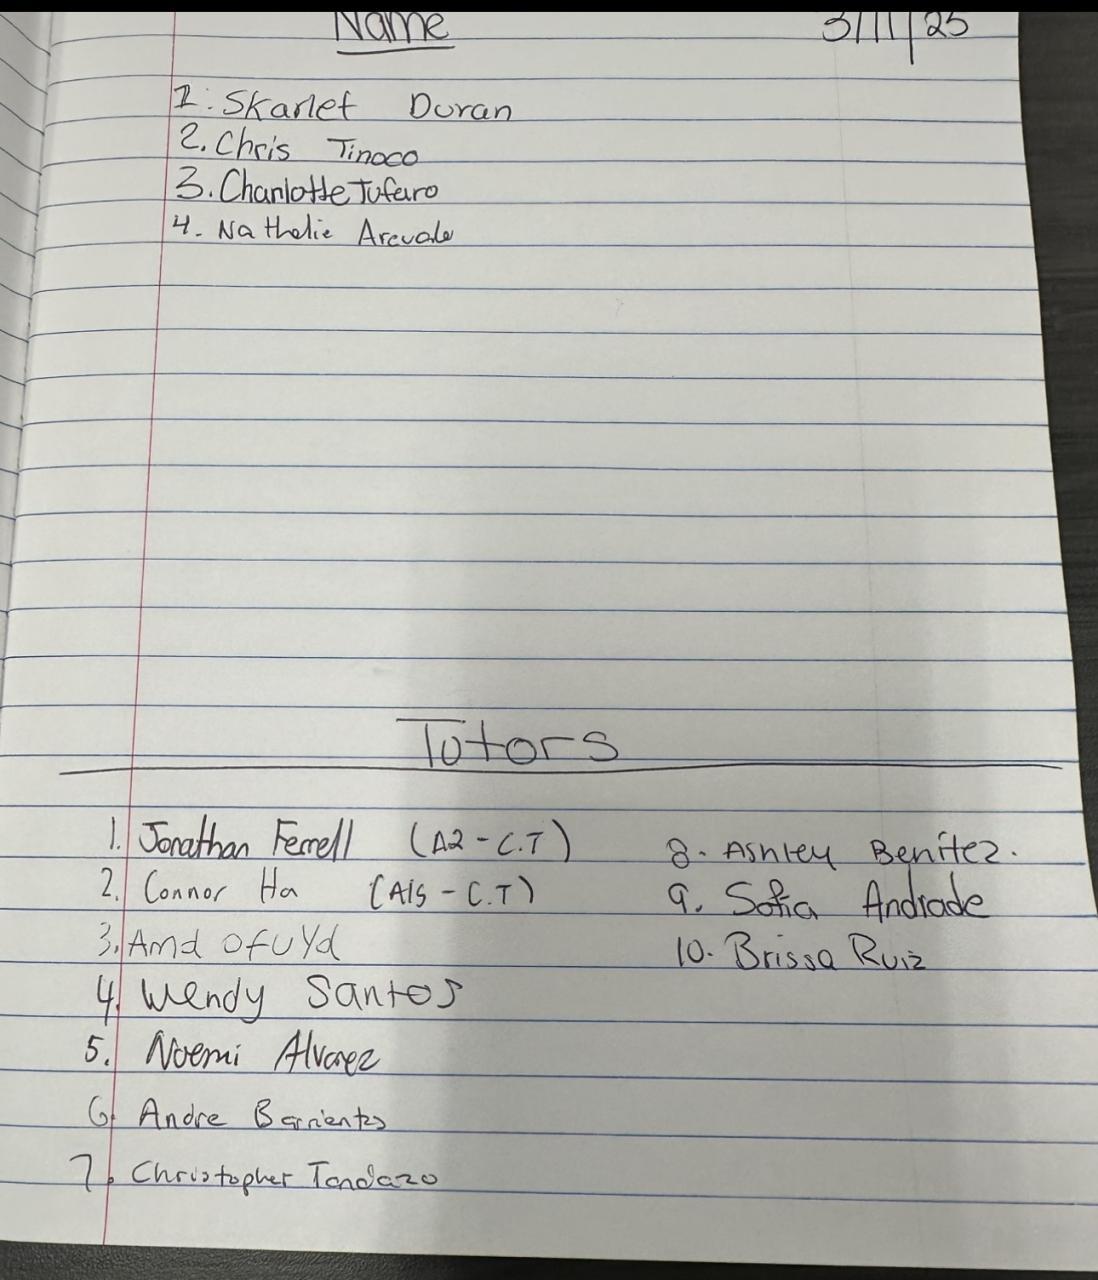 Name 3/11/25
1. Skarlet Duran
2. Chris Tinoco
3. Charlotte Tufaro
4. Nathalie Arevalo
Tutors
1. Jonathan Ferrell (A2-C.T)
2. Connor Ha (A15-C.T)
3. Amd ofuyd
4. Wendy Santos
5. Noemi Alvarez
6. Andre Barrientos
7. Christopher Tandazo
8. Ashley Benitez.
9. Sofia Andrade
10. Brissa Ruiz